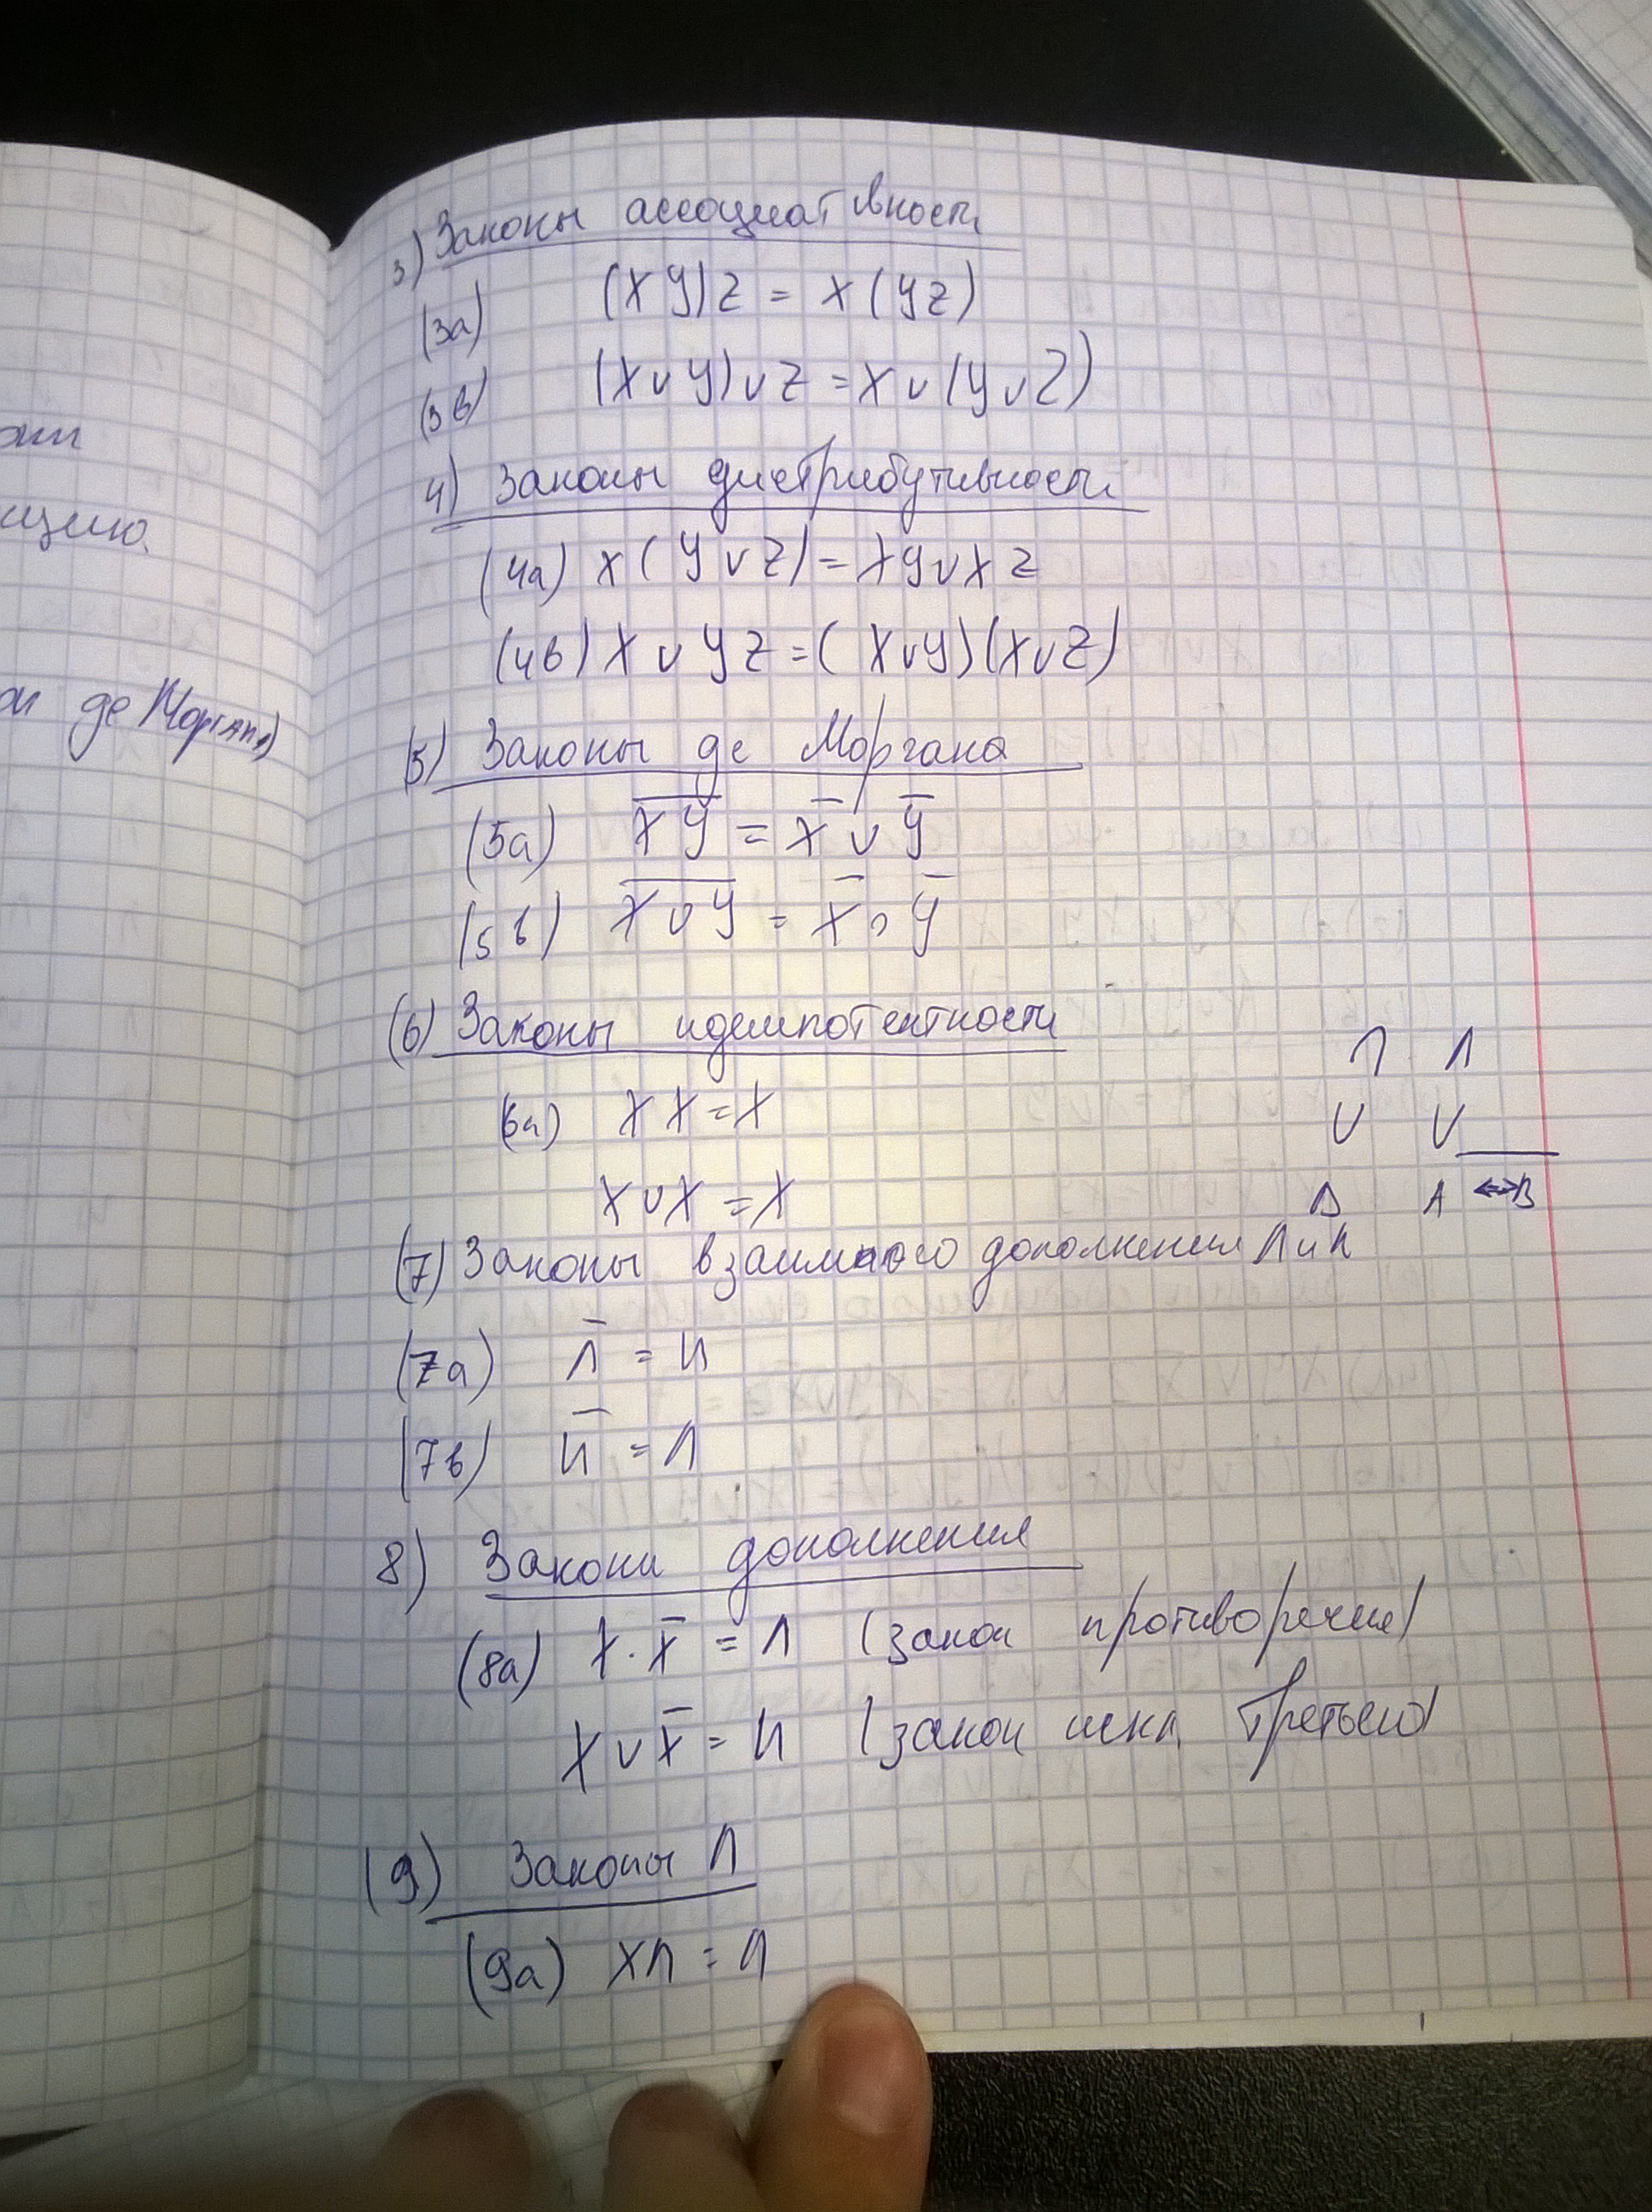 де Моргана)
3) Законы ассоциативности
(3а) (XY)Z = X(YZ)
(3в) (X∨Y)∨Z = X∨(Y∨Z)
4) Законы дистрибутивности
(4а) X(Y∨Z) = XY∨XZ
(4в) X∨YZ = (X∨Y)(X∨Z)
(5) Законы де Моргана
(5а) X̅Y̅ = X̅ ∨ Y̅
(5в) X̅∨̅Y̅ = X̅ ∘ Y̅
(6) Законы идемпотентности
(6а) XX = X
X∨X = X
∩ Λ
∪ V
A ↔B
(7) Законы взаимного дополнения Л и И
(7а) Л̅ = И
(7в) И̅ = Л
8) Законы дополнения
(8а) X·X̅ = Л (закон противоречия)
X∨X̅ = И (закон искл. третьего)
(9) Законы Л
(9а) XЛ = Л